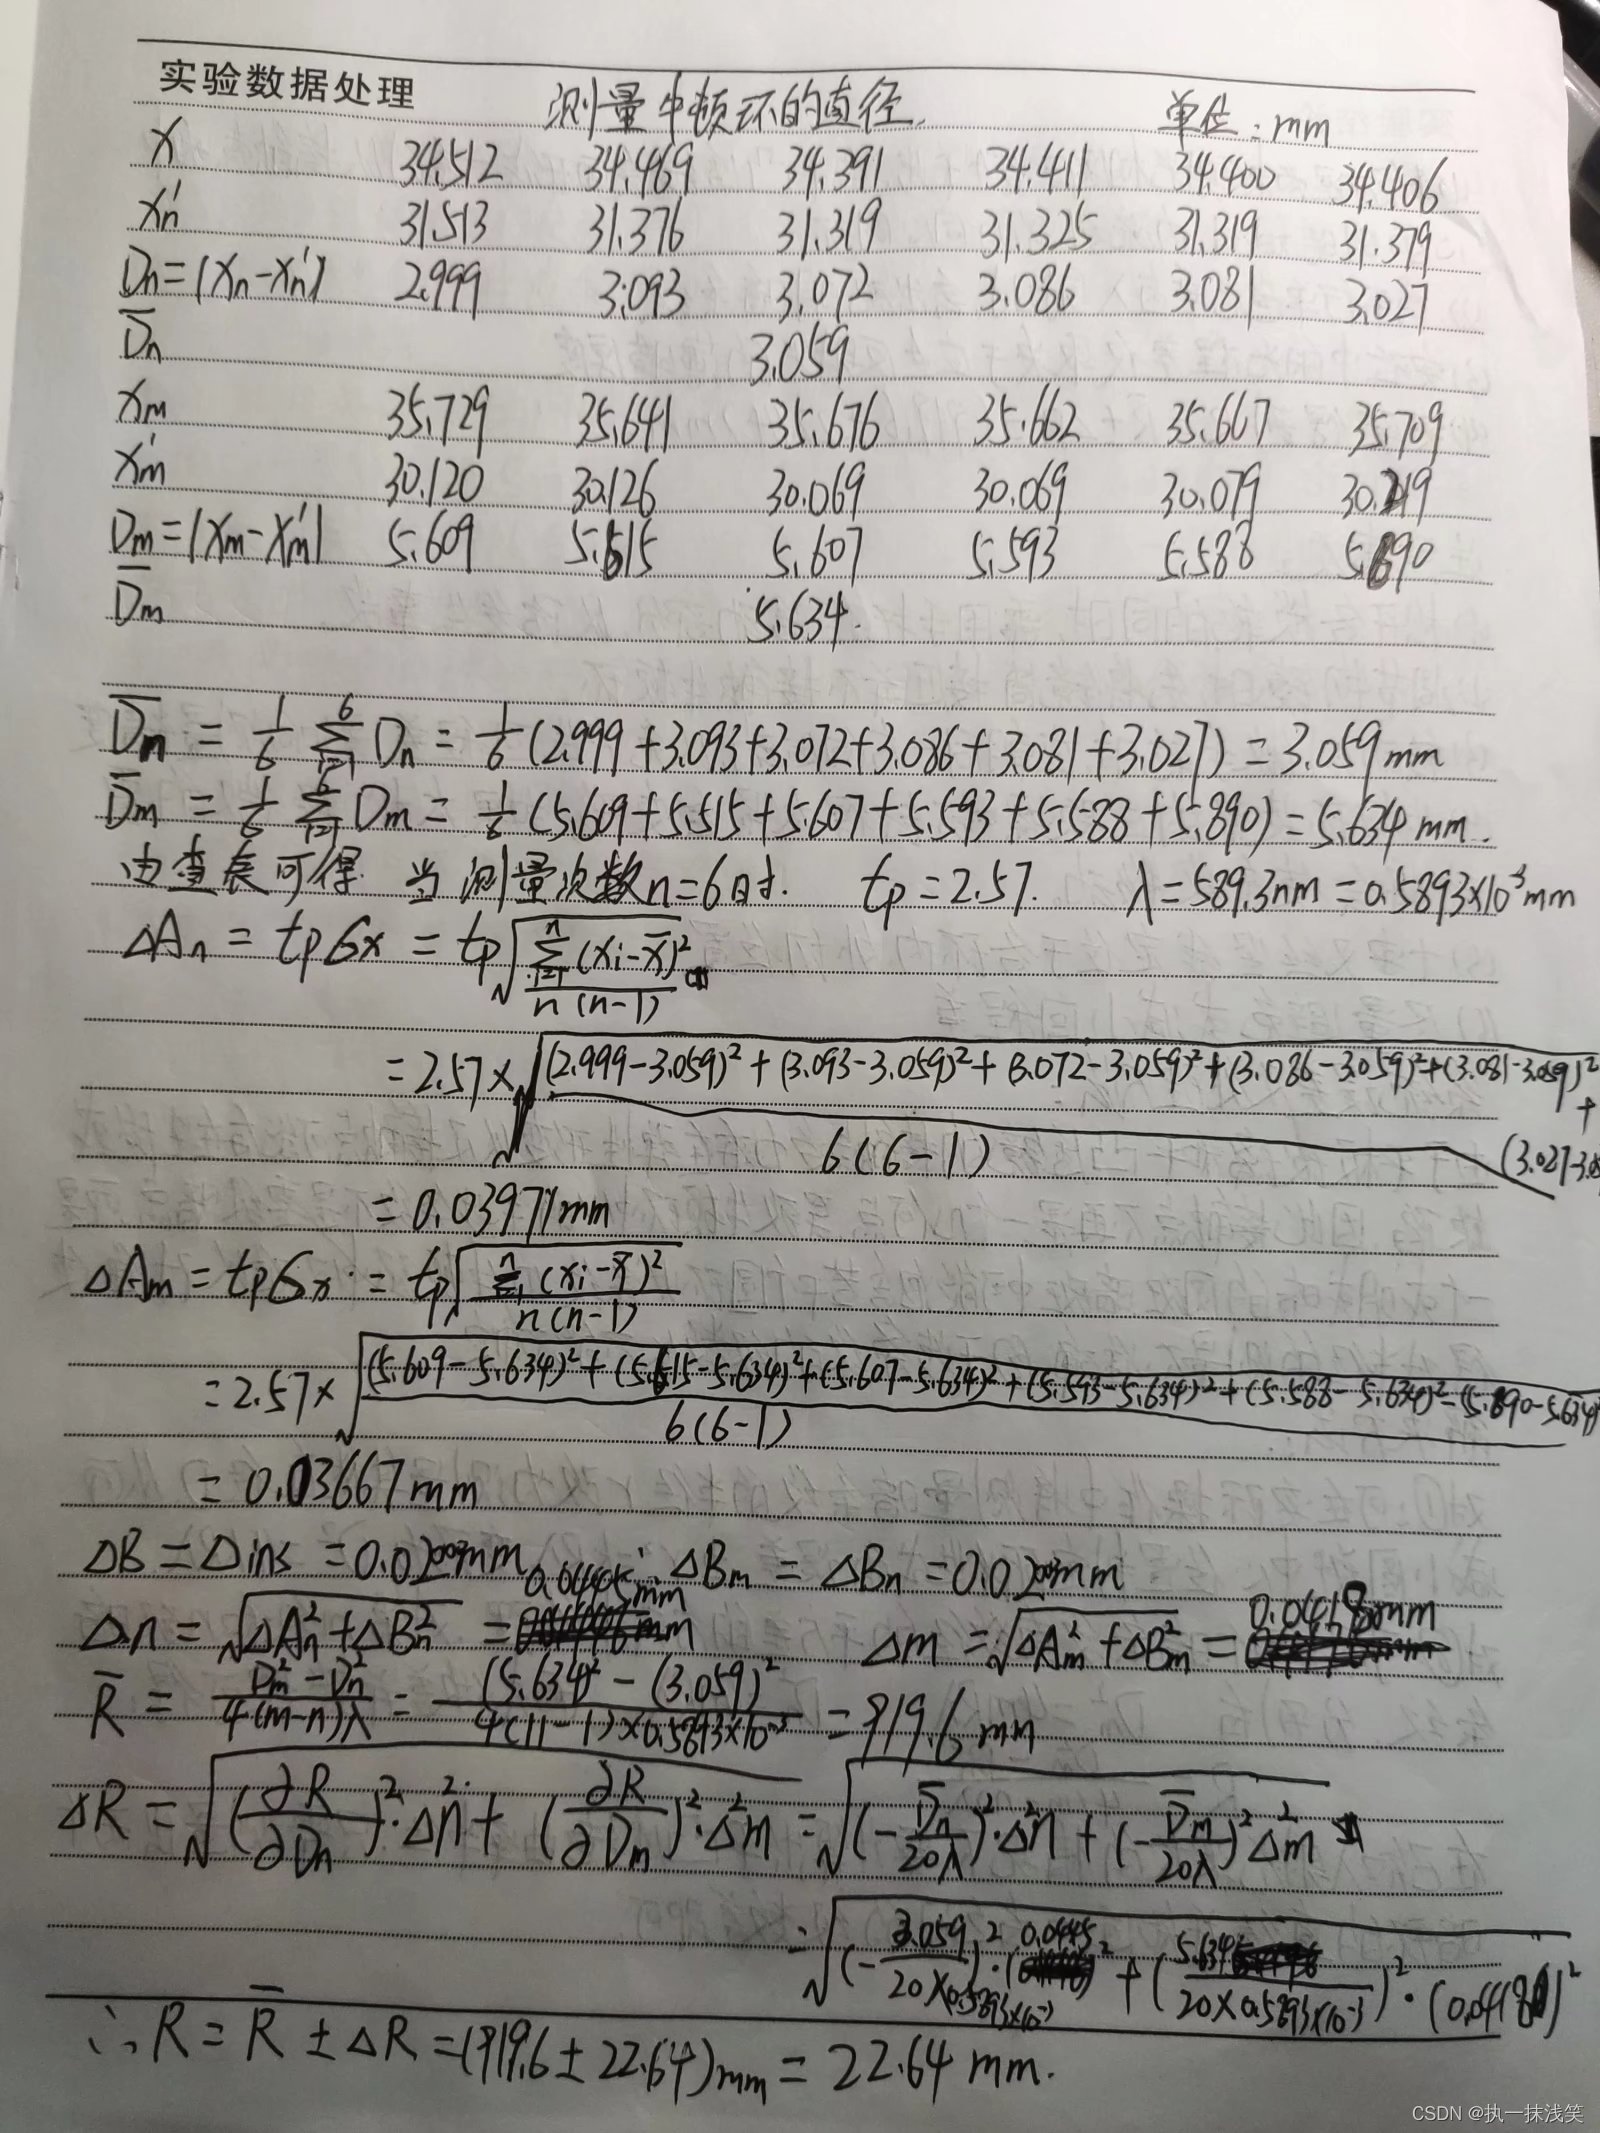 实验数据处理 测量牛顿环的直径. 单位:mm
X 34.512 34.469 34.391 34.411 34.400 34.406
Xn' 31.513 31.376 31.319 31.325 31.319 31.379
Dn=|Xn-Xn'| 2.999 3.093 3.072 3.086 3.081 3.027
D̅n 3.059
Xm 35.729 35.641 35.676 35.662 35.667 35.709
X'm 30.120 30.126 30.069 30.069 30.079
Dm=|Xm-X'm| 5.609 5.515 5.607 5.593 5.588 5.890
D̅m 5.634.
D̅n = 1/6 Σ(i=1→6) Dn = 1/6 (2.999+3.093+3.072+3.086+3.081+3.027) = 3.059mm
D̅m = 1/6 Σ(i=1→6) Dm = 1/6 (5.609+5.515+5.607+5.593+5.588+5.890) = 5.634 mm.
由查表可得. 当测量次数n=6时. tp=2.57. λ=589.3nm=0.5893×10⁻³mm
ΔAn = tpσx = tp√(Σ(i=1→n)(xi-x̅)²/n(n-1))
=2.57×√((2.999-3.059)²+(3.093-3.059)²+(3.072-3.059)²+(3.086-3.059)²+(3.081-3.059)²+(3.027-3.0
6(6-1)
= 0.03971mm
ΔAm = tpσx = tp√(Σ(xi-x̅)²/n(n-1))
=2.57×√((5.609-5.634)²+(5.515-5.634)²+(5.607-5.634)²+(5.593-5.634)²+(5.588-5.634)²-(5.890-5.634)
6(6-1)
= 0.03667mm
ΔB=Δins=0.0200mm ∴ ΔBm=ΔBn=0.0200mm
Δn=√(ΔAn²+ΔBn²) =0.04445mm Δm=√(ΔAm²+ΔBm²)=0.0418mm
R̅ = (Dm²-Dn²)/4(m-n)λ = ((5.634)²-(3.059)²)/4(11-1)×0.5893×10⁻³ = 919.6 mm
ΔR=√((∂R/∂Dn)²·Δ²n+(∂R/∂Dm)²·Δ²m)=√((-D̅n/20λ)²·Δ²n+(-D̅m/20λ)²Δ²m)
=√((-3.059/20×0.5893×10⁻³)²·(0.0445)²+(5.634/20×0.5893×10⁻³)²·(0.0418)²
∴R=R̅±ΔR=(919.6±22.64)mm=22.64 mm.
CSDN @执一抹浅笑